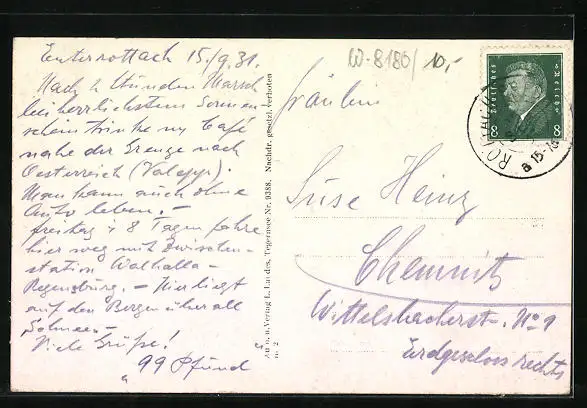 Enterrottach 15./9.31.
Nach 2 Stunden Marsch
bei herrlichstem Sonnen-
schein trinke ny Café
nahe der Grenze nach
Oesterreich (Valepp).
Man kann auch ohne
Auto leben.-
freitag i 8 Tagen fahre
hier weg mit Zwischen-
station Walhalla-
Regensburg.- Hier liegt
auf den Bergen überall
Schnee.-
Viele Grüße!
"99 Pfund"
Auf. u. Verlag L. Landes, Tegernsee Nr. 9388. Nachdr. gesetzl. verboten
W-8180/ 10,-
Deutsches Reich
8 8
ROTTACH
15-16
Fräulein
Suse Heinz
Chemnitz
Wittelsbacherst-. No 9
Erdgeschoss rechts